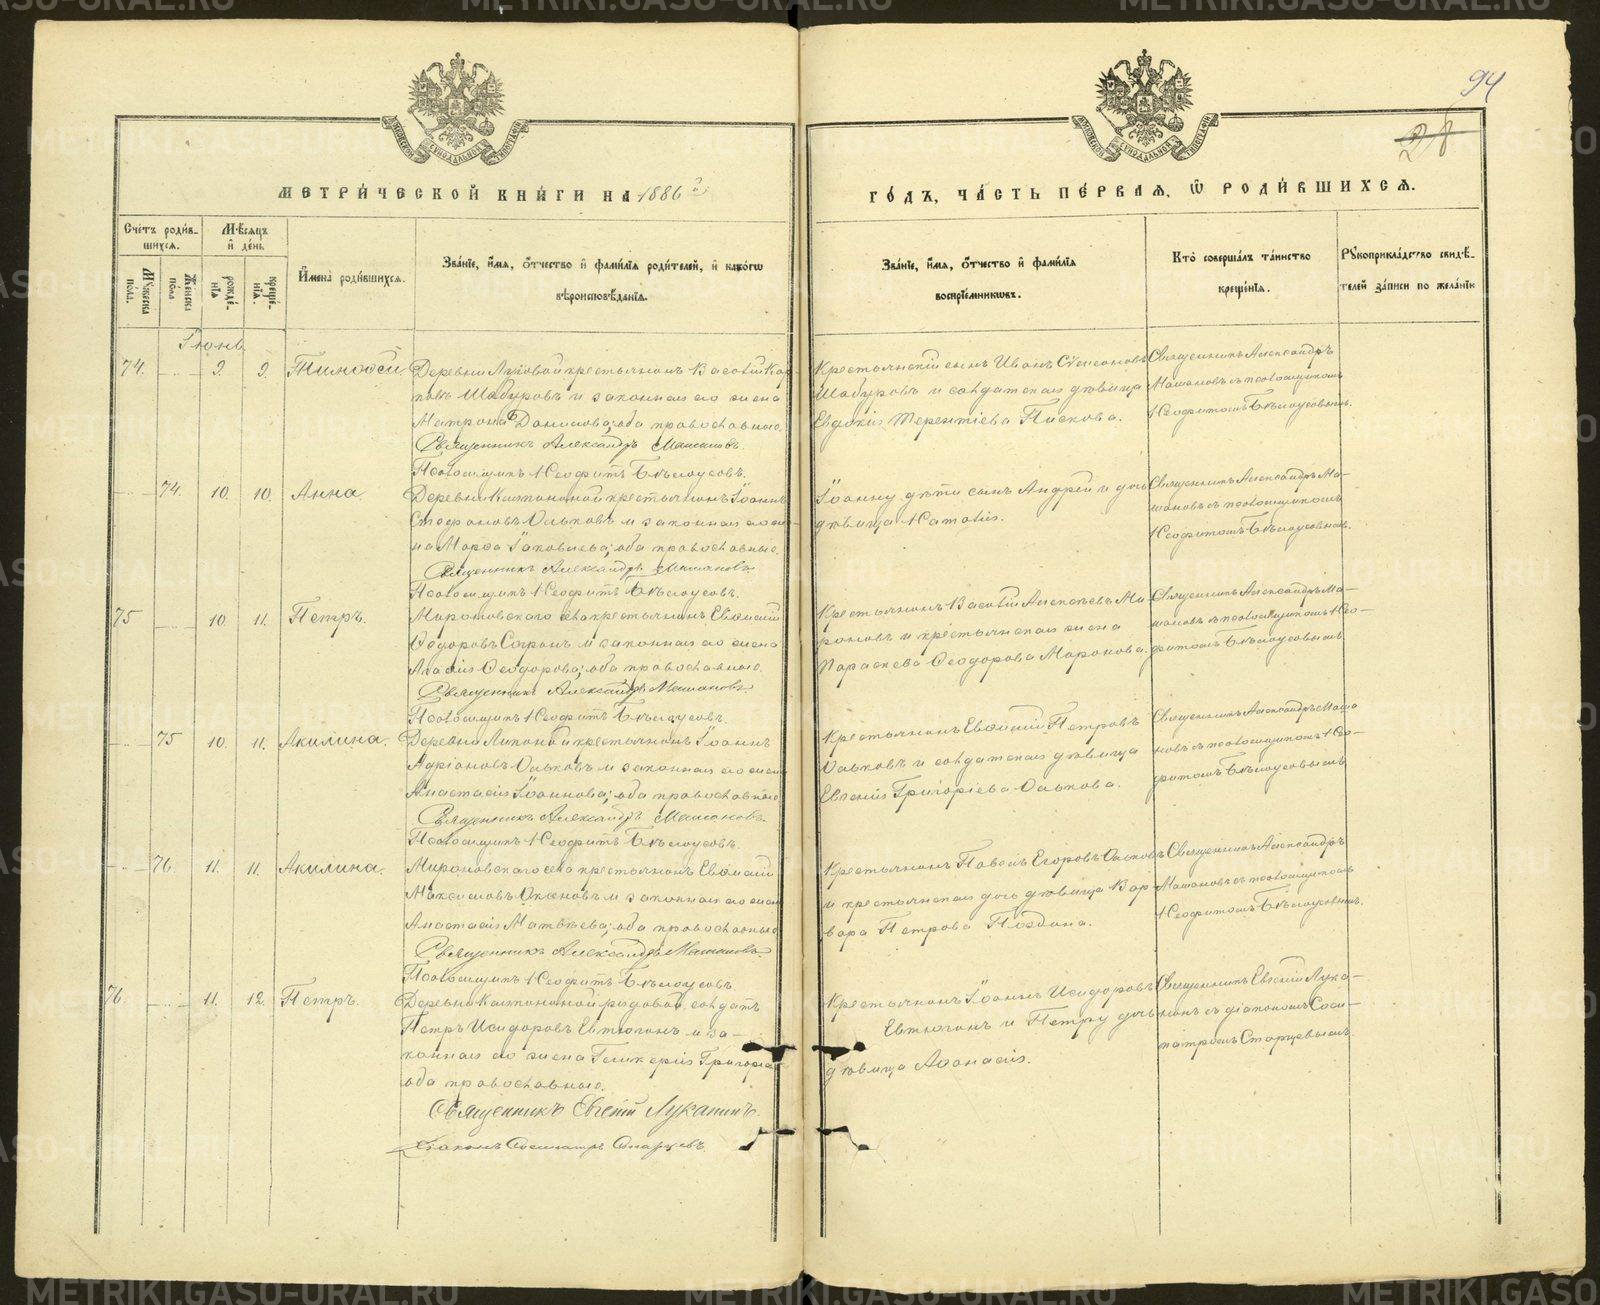 94
28
МЕТРИ́ЧЕСКОЙ КНИ́ГИ НА 1886 г.
ГО́ДЪ, ЧА́СТЬ ПЕ́РВАЯ, Ѡ РОДИ́ВШИХСЯ.
Сче́тъ роди́вшихся.
Му́жеска по́ла.
Же́нска по́ла.
Мѣ́сяцъ и́ де́нь
рожде́нія
креще́нія.
И́мена́ роди́вшихся.
Зва́ніе, и́мя, о́тчество и́ фами́лія роди́телей, и́ како́гѡ вѣроисповѣ́данія.
Зва́ніе, и́мя, о́тчество и́ фами́лія воспріе́мникѡвъ.
Кто̀ соверша́лъ та́инство креще́нія.
Рꙋкоприкла́дство свидѣ́телей за́писи по жела́нію
Іюнь
74. 9. 9. Тимофей.
Деревни Липовой крестьянинъ Васи́лій Кар-
повъ Шабуровъ и законная его жена
Матрона Данилова; оба православные.
Священникъ Александръ Машановъ.
Псаломщикъ Неофитъ Бѣлоусовъ.
Крестьянскій сынъ Иванъ Стефановъ
Шабуровъ и солдатская дѣвица
Евдокія Терентіева Пискова.
Священникъ Александръ
Машановъ съ псаломщикомъ
Неофитомъ Бѣлоусовымъ.
74. 10. 10. Анна.
крестьянинъ Іоаннъ
Стефановъ Ольковъ и законная его же-
на Марфа Іаковлева; оба православные.
Священникъ Александръ Машановъ.
Псаломщикъ Неофитъ Бѣлоусовъ.
Іоанну дѣти сынъ Андрей и дочь
дѣвица Наталія.
Священникъ Александръ Ма-
шановъ съ псаломщикомъ
Неофитомъ Бѣлоусовымъ.
75 10. 11. Петръ.
Мироновскаго села крестьянинъ Евфимій
Ѳеодоровъ и законная его жена
Ѳеодорова; оба православные.
Священникъ Александръ Машановъ.
Псаломщикъ Неофитъ Бѣлоусовъ.
Крестьянинъ Василій Алексѣевъ Ми-
роновъ и крестьянская жена
Параскева Ѳеодорова Миронова.
Священникъ Александръ Ма-
шановъ съ псаломщикомъ Нео-
фитомъ Бѣлоусовымъ
75 10. 11. Акилина.
Деревни Липовой крестьянинъ Іоаннъ
Адріановъ Ольковъ и законная его жена
Анастасія Іоаннова; оба православные.
Священникъ Александръ Машановъ.
Псаломщикъ Неофитъ Бѣлоусовъ.
Крестьянинъ Евфимій Петровъ
Ольковъ и солдатская дѣвица
Евгенія Григоріева Олькова.
Священникъ Александръ Маша
новъ съ псаломщикомъ Нео-
фитомъ Бѣлоусовымъ
76. 11. 11. Акилина.
Мироновскаго села крестьянинъ Евфимій
Максимовъ и законная его жена
Анастасія Матвѣева; оба православные.
Священникъ Александръ Машановъ.
Псаломщикъ Неофитъ Бѣлоусовъ.
Крестьянинъ Павелъ Егоровъ Ольковъ
и крестьянская дочь дѣвица Вар-
вара Петрова
Священникъ Александръ
Машановъ съ псаломщикомъ
Неофитомъ Бѣлоусовымъ.
76. 11. 12. Петръ.
рядовой солдатъ
Петръ Исидоровъ Евтюгинъ и за-
конная его жена Гликерія Григоріева
оба православные.
Священникъ Евгеній Луканинъ.
Діаконъ Сосипатръ Старцевъ.
Крестьянинъ Іоаннъ Исидоровъ
Евтюгинъ и Петру дочь
дѣвица Аѳанасія.
Священникъ Евгеній Лука-
нинъ съ діакономъ Соси-
патромъ Старцевымъ.
METRIKI.GASO-URAL.RU